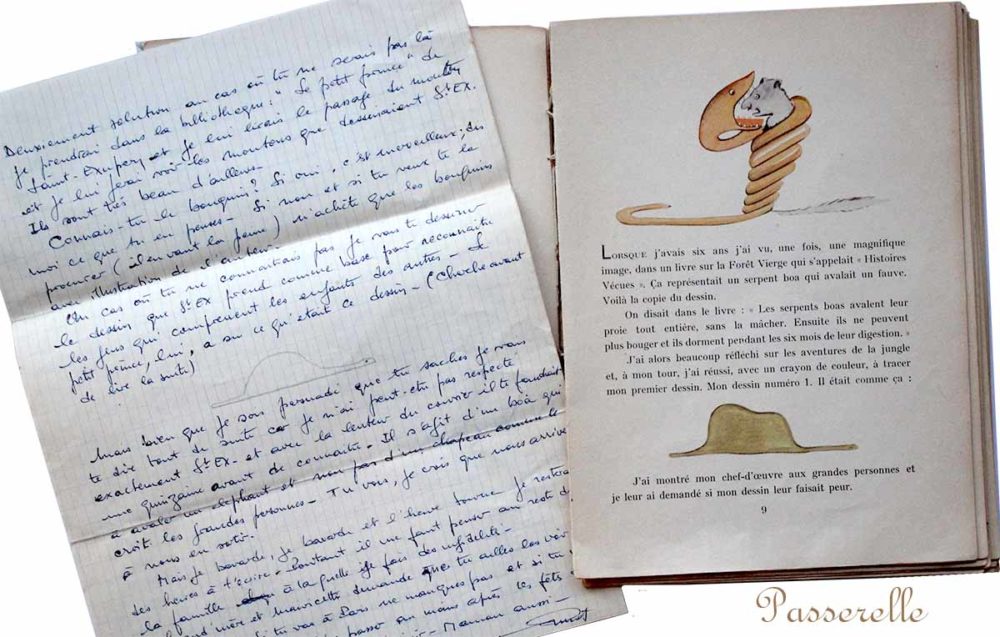 Deuxiement solution au cas où tu ne serais pas là
je prendrai dans la bibliothèque : "Le petit prince" de
Saint-Exupery et je lui lirais le passage du mouton
et je lui ferai voir les moutons que dessinaient St Ex.
Ils sont très beau d'ailleurs
Connais-tu le bouquin? Si oui, c'est merveilleux; dis
moi ce que tu en penses - Si non et si tu veux te la
procurer (il en vaut la peine) n'achète que les bouquins
avec illustration de l'auteur.
En cas où tu ne connaitrais pas je vais te dessiner
le dessin que St Ex prend comme base pour reconnaitre
les gens qui comprennent les enfants des autres - Le
petit prince, lui, a su ce qu'était ce dessin - (Cherche avant
de lire la suite)
Mais bien que je sois persuadé que tu saches je vais
te dire tout de suite car je n'ai peut-être pas respecté
exactement St Ex - et avec la lenteur du courrier il te faudrait
une quinzaine avant de connaitre - Il s'agit d'un boa qui
a avalé un éléphant et non pas d'un chapeau comme le
croit les grandes personnes - Tu vois, je crois que nous arrive
à nous en sortir.
Mais je bavarde, je bavarde et l'heure tourne je resterai
des heures à t'écrire - pourtant il me faut penser au reste de
la famille à laquelle je fais des infidélité -
mère et Mauricette demande que tu ailles les voir
si tu vas à Paris ne manques pas et si tu
passé au mans après les fête
Maman aussi -
LORSQUE j'avais six ans j'ai vu, une fois, une magnifique
image, dans un livre sur la Forêt Vierge qui s'appelait « Histoires
Vécues ». Ça représentait un serpent boa qui avalait un fauve.
Voilà la copie du dessin.
On disait dans le livre : « Les serpents boas avalent leur
proie tout entière, sans la mâcher. Ensuite ils ne peuvent
plus bouger et ils dorment pendant les six mois de leur digestion. »
J'ai alors beaucoup réfléchi sur les aventures de la jungle
et, à mon tour, j'ai réussi, avec un crayon de couleur, à tracer
mon premier dessin. Mon dessin numéro 1. Il était comme ça :
J'ai montré mon chef-d'œuvre aux grandes personnes et
je leur ai demandé si mon dessin leur faisait peur.
9
Passerelle